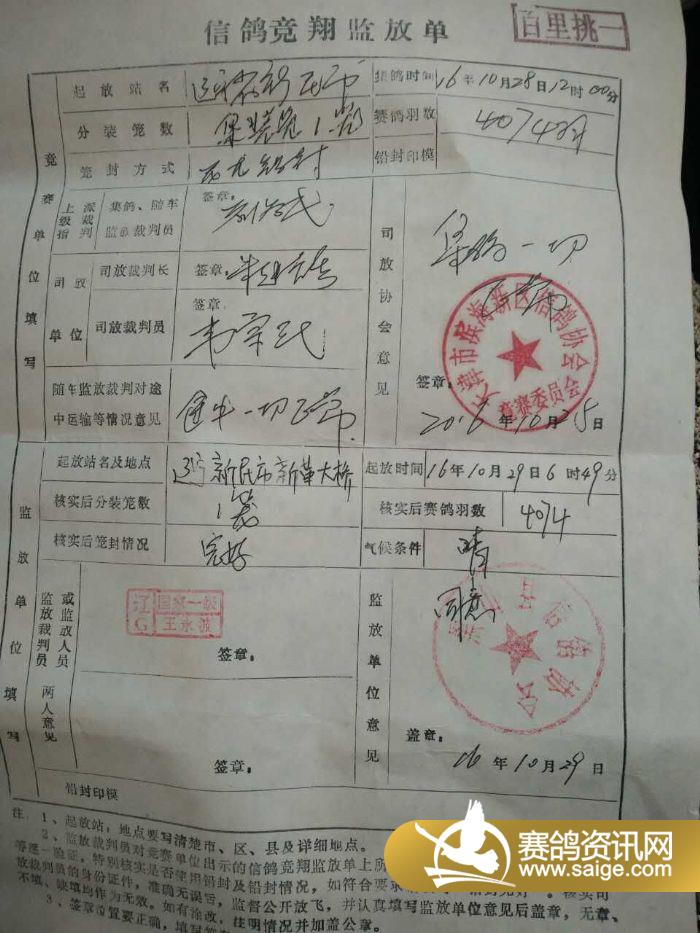 信鸽竞翔监放单
百里挑一
竞赛单位填写
起放站名
集鸽时间 16年10月28日12时00分
分装笼数
赛鸽羽数 4074羽
笼封方式
铅封印模
上级指派裁判
集鸽、随车
监放裁判员
签章:
司放单位
司放裁判长 签章:
司放裁判员 签章:
随车监放裁判对途
中运输等情况意见 途中一切正常
司放协会意见
集鸽一切
正常
天津市滨海新区信鸽协会
竞赛委员会
签章:
2016年10月28日
监放单位填写
起放站名及地点 辽宁新民市新革大桥
起放时间 16年10月29日6时49分
核实后分装笼数
核实后赛鸽羽数 4074
核实后笼封情况 完好
气候条件 晴
监放裁判员
或监放人员
两人意见
辽G 国家一级
王永波
签章:
签章:
监放单位意见
同意
信鸽协会
盖章:
16年10月29日
铅封印模
注:1、起放站,地点要写清楚市、区、县及详细地点。
2、监放裁判员对竞赛单位出示的信鸽竞翔监放单上所
等逐一验证,特别核实是否使用铅封及铅封情况,如符合要求
核实司
放裁判员的身份证件,准确无误后,监督公开放飞,并认真填写监放单位意见后盖章,无章、
不填、缺填均作为无效。如有涂改,注明情况并加盖公章。
3、签章位置要正确,
赛鸽资讯网
www.saige.com